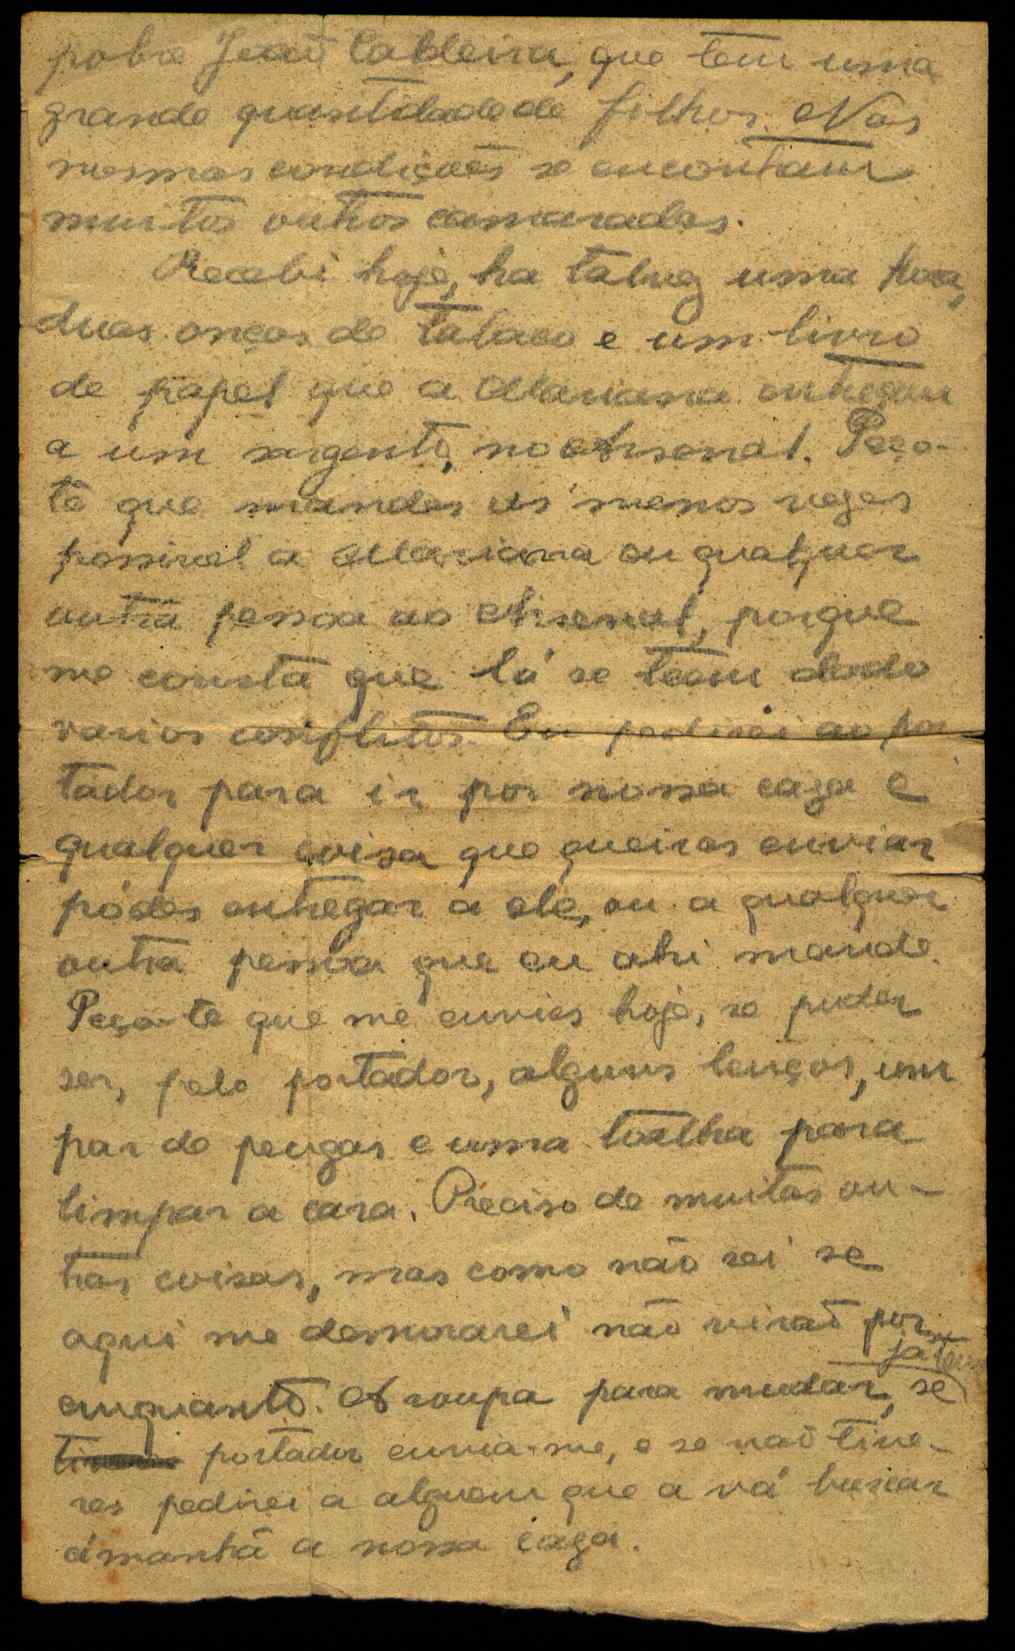 pobre João Caldeira, que tem uma
grande quantidade de filhos. Nas
mesmas condições se encontram
muitos outros camaradas.
Recebi hoje, ha talvez uma hora,
duas onças de tabaco e um livro
de papel que a Mariana entregou
a um sargento, no Arsenal. Peço-
te que mandes as menos vezes
possivel a Mariana ou qualquer
outra pessoa ao Arsenal, porque
me consta que lá se teem dado
varios conflitos. Eu pedirei ao por
tador para ir por nossa caza e
qualquer coisa que queiras enviar
pódes entregar a ele, ou a qualquer
outra pessoa que eu ahi mande.
Peço-te que me envies hoje, se puder
ser, pelo portador, alguns lenços, um
par de peugas e uma toalha para
limpar a cara. Preciso de muitas ou-
tras coisas, mas como não sei se
aqui me demorarei não virão por
enquanto. A roupa para mudar, se já tens
portador envia-me, e se não tive-
res pedirei a alguem que a vá buscar
ámanhã a nossa caza.